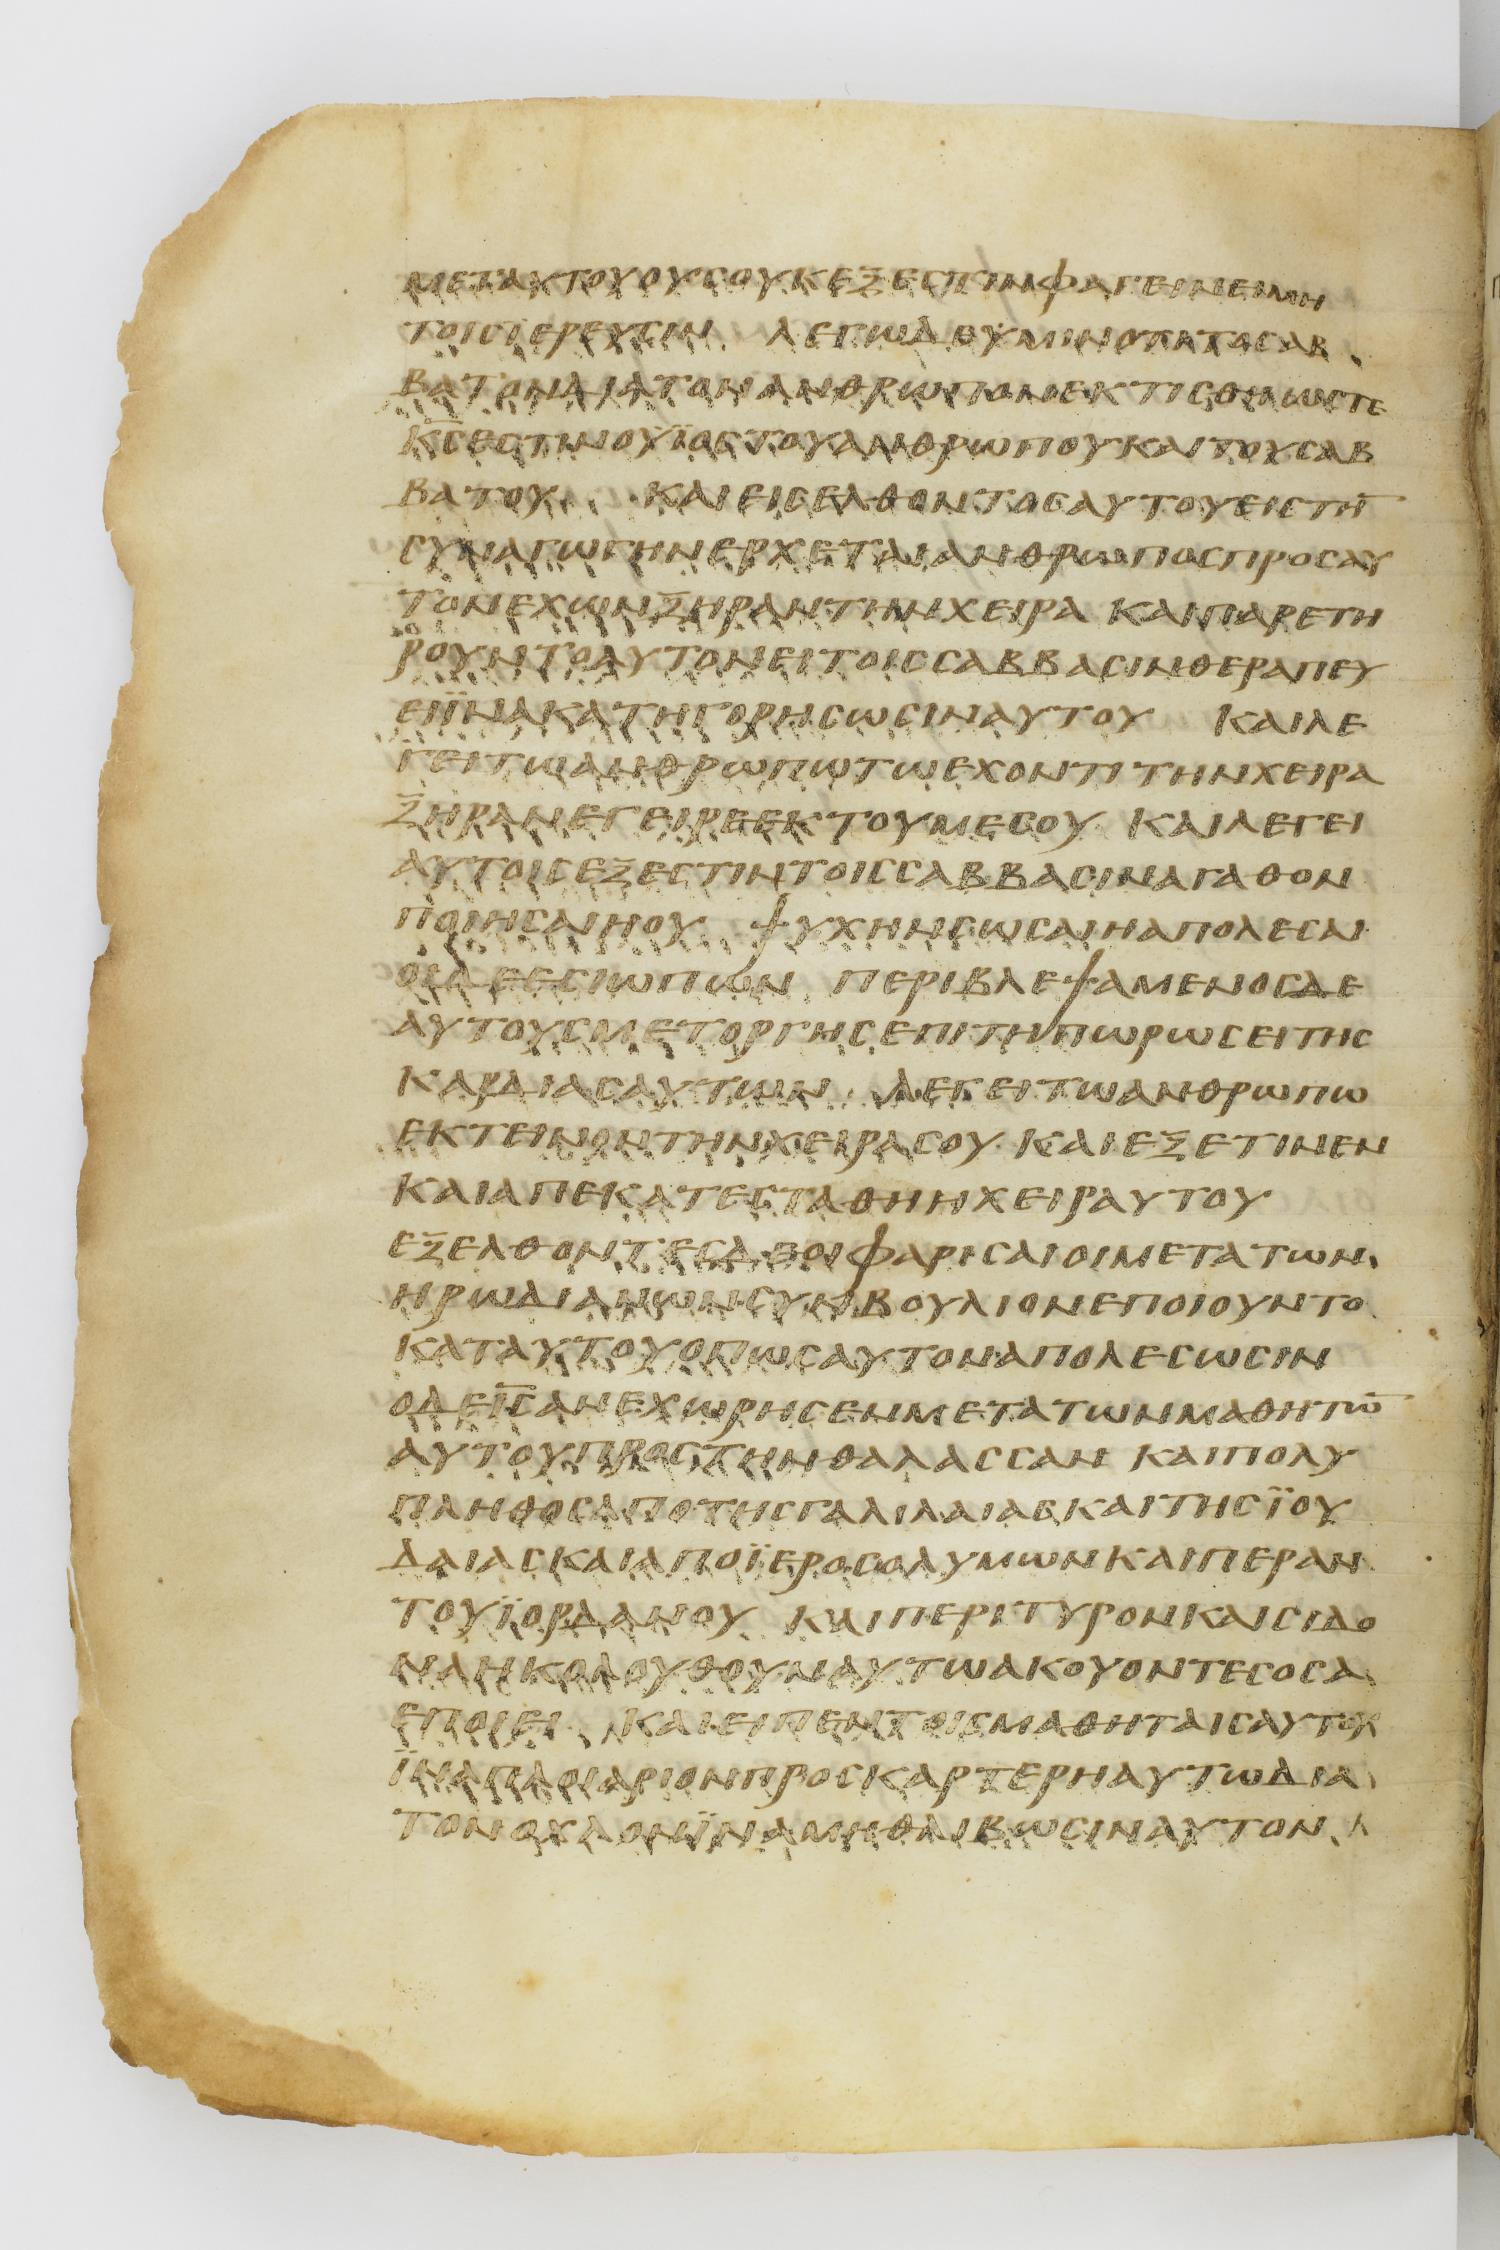 ΜΕΤΑΥΤΟΥΟΥϹΟΥΚΕΞΕϹΤΙΝΦΑΓΕΙΝΕΙΜΗ
ΤΟΙϹΙΕΡΕΥϹΙΝ ΛΕΓΩΔΕΥΜΙΝΟΤΙΤΟϹΑΒ
ΒΑΤΟΝΔΙΑΤΟΝΑΝΘΡΩΠΟΝΕΚΤΙϹΘΗΩϹΤΕ
Κ̅Ϲ̅ΕϹΤΙΝΟΥΪΟϹΤΟΥΑΝΘΡΩΠΟΥΚΑΙΤΟΥϹΑΒ
ΒΑΤΟΥ ΚΑΙΕΙϹΕΛΘΟΝΤΟϹΑΥΤΟΥΕΙϹΤΗ̅
ϹΥΝΑΓΩΓΗΝΕΡΧΕΤΑΙΑΝΘΡΩΠΟϹΠΡΟϹΑΥ
ΤΟΝΕΧΩΝΞΗΡΑΝΤΗΝΧΕΙΡΑ ΚΑΙΠΑΡΕΤΗ
ΡΟΥΝΤΟΑΥΤΟΝΕΙΤΟΙϹϹΑΒΒΑϹΙΝΘΕΡΑΠΕΥ
ΕΙΪΝΑΚΑΤΗΓΟΡΗϹΩϹΙΝΑΥΤΟΥ ΚΑΙΛΕ
ΓΕΙΤΩΑΝΘΡΩΠΩΤΩΕΧΟΝΤΙΤΗΝΧΕΙΡΑ
ΞΗΡΑΝΕΓΕΙΡΕΕΚΤΟΥΜΕϹΟΥ ΚΑΙΛΕΓΕΙ
ΑΥΤΟΙϹΕΞΕϹΤΙΝΤΟΙϹϹΑΒΒΑϹΙΝΑΓΑΘΟΝ
ΠΟΙΗϹΑΙΗΟΥ ΨΥΧΗΝϹΩϹΑΙΗΑΠΟΛΕϹΑΙ
ΟΙΔΕΕϹΙΩΠΩΝ ΠΕΡΙΒΛΕΨΑΜΕΝΟϹΔΕ
ΑΥΤΟΥϹΜΕΤΟΡΓΗϹΕΠΙΤΗΠΩΡΩϹΕΙΤΗϹ
ΚΑΡΔΙΑϹΑΥΤΩΝ ΛΕΓΕΙΤΩΑΝΘΡΩΠΩ
ΕΚΤΕΙΝΟΝΤΗΝΧΕΙΡΑϹΟΥ ΚΑΙΕΞΕΤΙΝΕΝ
ΚΑΙΑΠΕΚΑΤΕϹΤΑΘΗΗΧΕΙΡΑΥΤΟΥ
ΕΞΕΛΘΟΝΤΕϹΔΕΟΙΦΑΡΙϹΑΙΟΙΜΕΤΑΤΩΝ
ΗΡΩΔΙΑΝΩΝϹΥΝΒΟΥΛΙΟΝΕΠΟΙΟΥΝΤΟ
ΚΑΤΑΥΤΟΥΟΠΩϹΑΥΤΟΝΑΠΟΛΕϹΩϹΙΝ
ΟΔΕΙ̅Ϲ̅ΑΝΕΧΩΡΗϹΕΝΜΕΤΑΤΩΝΜΑΘΗΤΩ̅
ΑΥΤΟΥΠΡΟϹΤΗΝΘΑΛΑϹϹΑΝ ΚΑΙΠΟΛΥ
ΠΛΗΘΟϹΑΠΟΤΗϹΓΑΛΙΛΑΙΑϹΚΑΙΤΗϹΪΟΥ
ΔΑΙΑϹΚΑΙΑΠΟΪΕΡΟϹΟΛΥΜΩΝΚΑΙΠΕΡΑΝ
ΤΟΥΪΟΡΔΑΝΟΥ ΚΑΙΠΕΡΙΤΥΡΟΝΚΑΙϹΙΔΟ
ΝΑΗΚΟΛΟΥΘΟΥΝΑΥΤΩΑΚΟΥΟΝΤΕϹΟϹΑ
ΕΠΟΙΕΙ ΚΑΙΕΙΠΕΝΤΟΙϹΜΑΘΗΤΑΙϹΑΥΤΟΥ
ΪΝΑΠΛΟΙΑΡΙΟΝΠΡΟϹΚΑΡΤΕΡΗΑΥΤΩΔΙΑ
ΤΟΝΟΧΛΟΝΪΝΑΜΗΘΛΙΒΩϹΙΝΑΥΤΟΝ